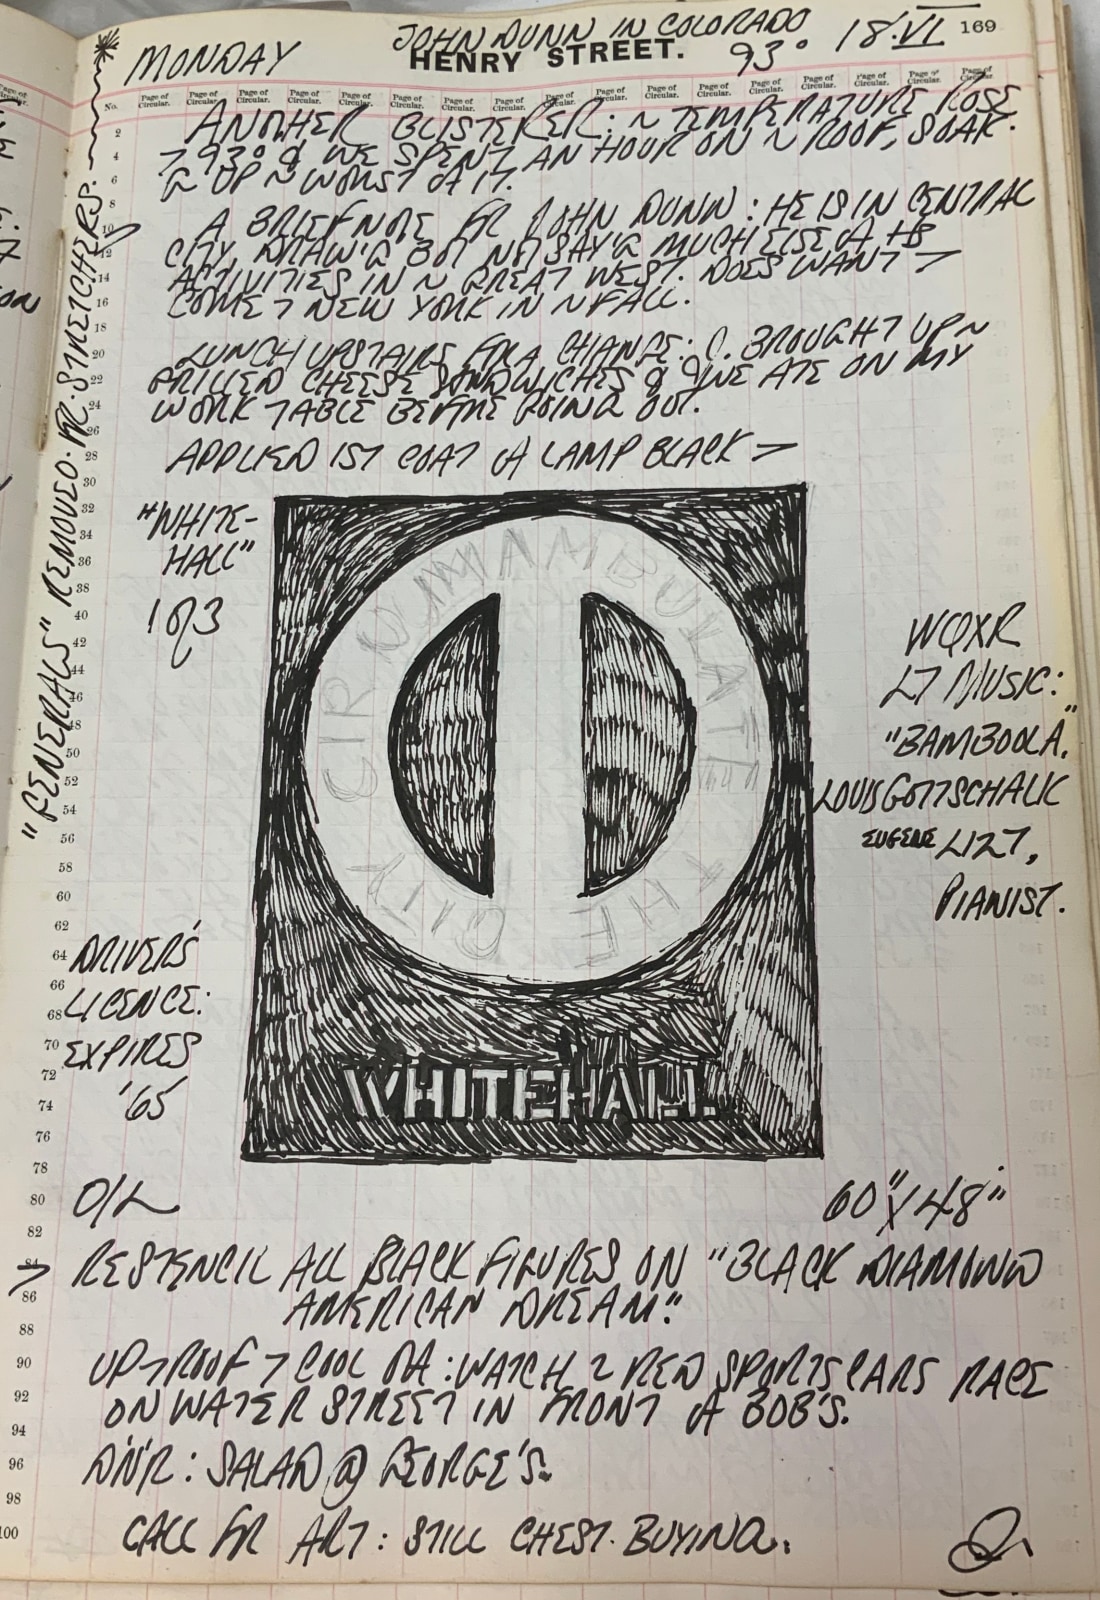 JOHN DUNN IN COLORADO
MONDAY HENRY STREET. 93° 18·VI 169
No. Page of Circular. Page of Circular. Page of Circular. Page of Circular. Page of Circular. Page of Circular. Page of Circular. Page of Circular. Page of Circular. Page of Circular. Page of Circular. Page of Circular. Page of Circular. Page of Circular. Page of Circular. Page of Circular. Page of Circular.
ANOTHER BLISTERER: ~ TEMPERATURE ROSE
7 93° & WE SPENT AN HOUR ON ~ ROOF, SOAK-
G UP ~ WORST OF IT.
A BRIEF NOTE FR JOHN DUNN: HE IS IN CENTRAL
CITY, DRAW'G BUT NOT SAY'G MUCH ELSE OF HS
ACTIVITIES IN ~ GREAT WEST. DOES WANT 7
COME 7 NEW YORK IN ~ FALL.
LUNCH UPSTAIRS FR A CHANGE: C. BROUGHT UP ~
GRILLED CHEESE SANDWICHES & WE ATE ON MY
WORK TABLE BEFORE GOING OUT.
APPLIED 1ST COAT OF LAMP BLACK >
"GENERALS" REMOVED FR STRETCHERS.
"WHITE-
HALL"
1 OF 3
CIRCUMAMBULATE THE CITY
WHITEHALL
WQXR
L7 MUSIC:
"BAMBOOLA."
LOUIS GOTTSCHALK
EUGENE LIZT,
PIANIST.
DRIVER'S
LICENCE:
EXPIRES
'65
O/L
60" X 48"
> RESTENCIL ALL BLACK FIGURES ON "BLACK DIAMOND
AMERICAN DREAM."
UP 7 ROOF 7 COOL OFF: WATCH 2 RED SPORTS CARS RACE
ON WATER STREET IN FRONT OF BOB'S.
DN'R: SALAD @ GEORGE'S.
CALL FR ART: STILL CHEST-BUYING.
2
4
6
8
10
12
14
16
18
20
22
24
26
28
30
32
34
36
38
40
42
44
46
48
50
52
54
56
58
60
62
64
66
68
70
72
74
76
78
80
82
84
86
88
90
92
94
96
98
100